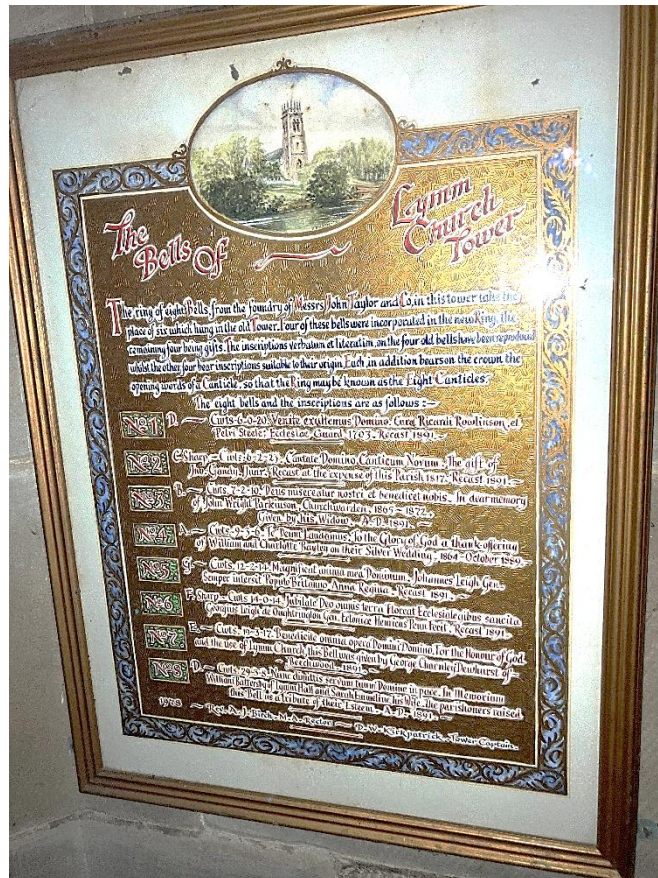 The Bells Of Lymm Church Tower
The ring of eight Bells, from the foundry of Messrs John Taylor and Co, in this tower take the
place of six which hung in the old Tower. Four of these bells were incorporated in the new Ring, the
remaining four being gifts. The inscriptions verbatum et literatim, on the four old bells have been reproduced
whilst the other four bear inscriptions suitable to their origin. Each in addition bears on the crown the
opening words of a Canticle, so that the Ring may be known as the Eight Canticles.
The eight bells and the inscriptions are as follows :—
No 1 D. — Cwts-6-0-20. Venite exultemus Domino. Cura Ricardi Rowlinson, et
Petri Steele: Ecclesiae Guard, 1703. Recast 1891.
No 2 C. Sharp — Cwts: 6-2-23. Cantate Domino Canticum Novum. The gift of
Jno. Gandy, Junr. Recast at the expense of this Parish 1817. Recast 1891.
No 3 B. — Cwts. 7-2-10. Deus misereatur nostri et benedicet nobis. In dear memory
of John Wright Parkinson, Churchwarden, 1865 - 1872.
Given by his Widow. A.D. 1891.
No 4 A — Cwts. Te Deum Laudamus. To the Glory of God a thank-offering
of William and Charlotte Bayley on their Silver Wedding, 1864 - October 1889.
No 5 G. — Cwts. 12-2-14. Magnificat anima mea Dominum. Johannes Leigh Gen.
Semper intersit Populo Britanno Anna Regina. Recast 1891.
No 6 F. Sharp — Cwts 14-0-14. Jubilate Deo omnis terra Floreat Ecclesia legibus sancita
Georgius Leigh de Oughtrington Gen. Henricus Penn Fecit. Recast 1891.
No 7 E. — Cwts. 19-3-17. Benedicite omnia opera Domini Domino. For the Honour of God
and the use of Lymm Church, this Bell was given by George Charnley Dewhurst of
Beechwood — 1891.
No 8 D. — Cwts Nunc dimittis servum tuum Domine in pace. In Memoriam
William Battersby of Lymm Hall and Sarah Emmeline his wife. The parishoners raised
this Bell as a tribute of their Esteem. A.D. 1891.
Rev. A. J. Birch. M.A. Rector — D. W. Kirkpatrick. Tower Captain.